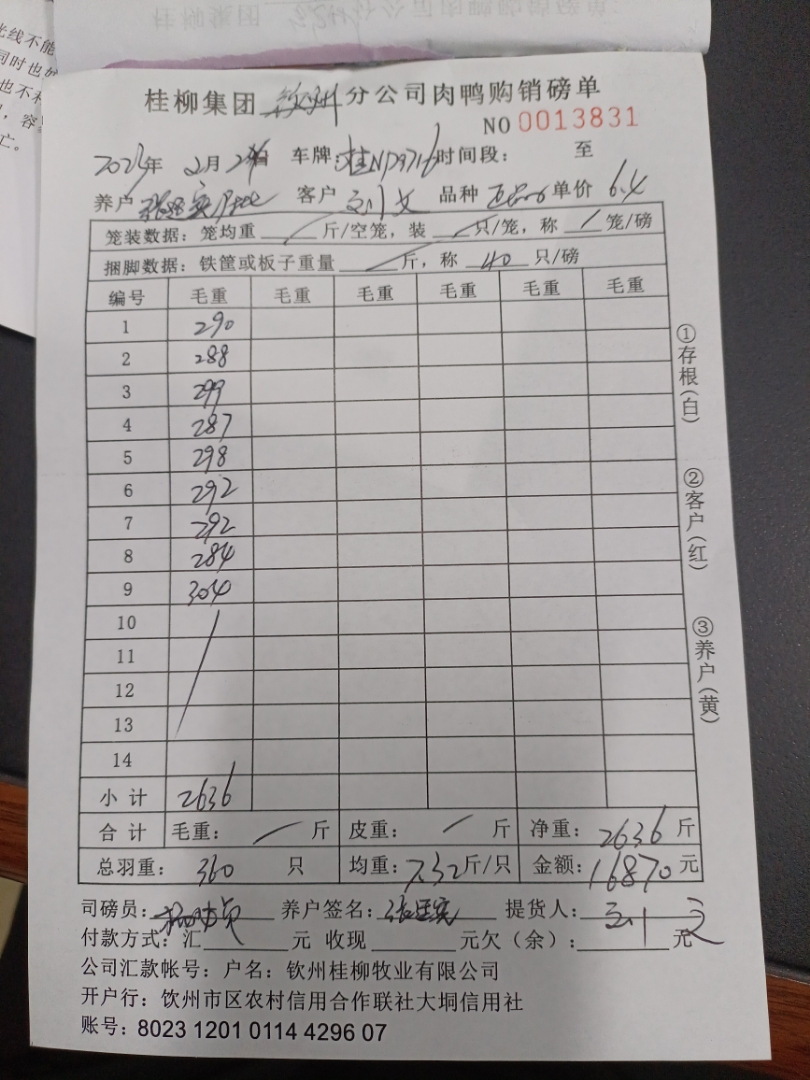 光线不能
同时也
也不利
，容
亡。
桂柳集团 钦州 分公司肉鸭购销磅单
NO 0013831
年 2月2 车牌:桂ND9716时间段： 至
养户 客户 刘文 品种 单价 6.4
笼装数据：笼均重 / 斤/空笼，装 / 只/笼，称 / 笼/磅
捆脚数据：铁筐或板子重量 / 斤，称 40 只/磅
编号 毛重 毛重 毛重 毛重 毛重 毛重
1 290
2 288
3 299
4 287
5 298
6 292
7 292
8 284
9 304
10
11
12
13
14
小计 2636
合计 毛重： / 斤 皮重： / 斤 净重：2636 斤
总羽重：360 只 均重：7.32斤/只 金额：16870元
①存根(白)
②客户(红)
③养户(黄)
司磅员： 养户签名： 提货人：刘文
付款方式：汇 元 收现 元欠（余）： 元
公司汇款帐号：户名：钦州桂柳牧业有限公司
开户行：钦州市区农村信用合作联社大垌信用社
账号：8023 1201 0114 4296 07